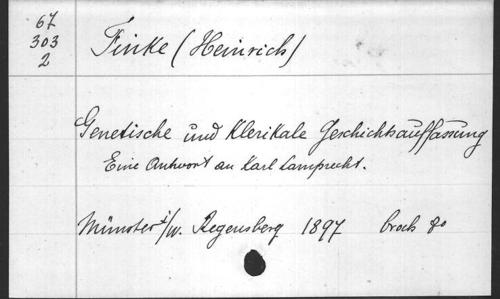 67
303
2
Finke (Heinrich)
Genetische und klerikale Geschichtsauffassung
Eine Antwort an Karl Lamprecht.
Münster i/W. Regensberg 1897 broch 8o